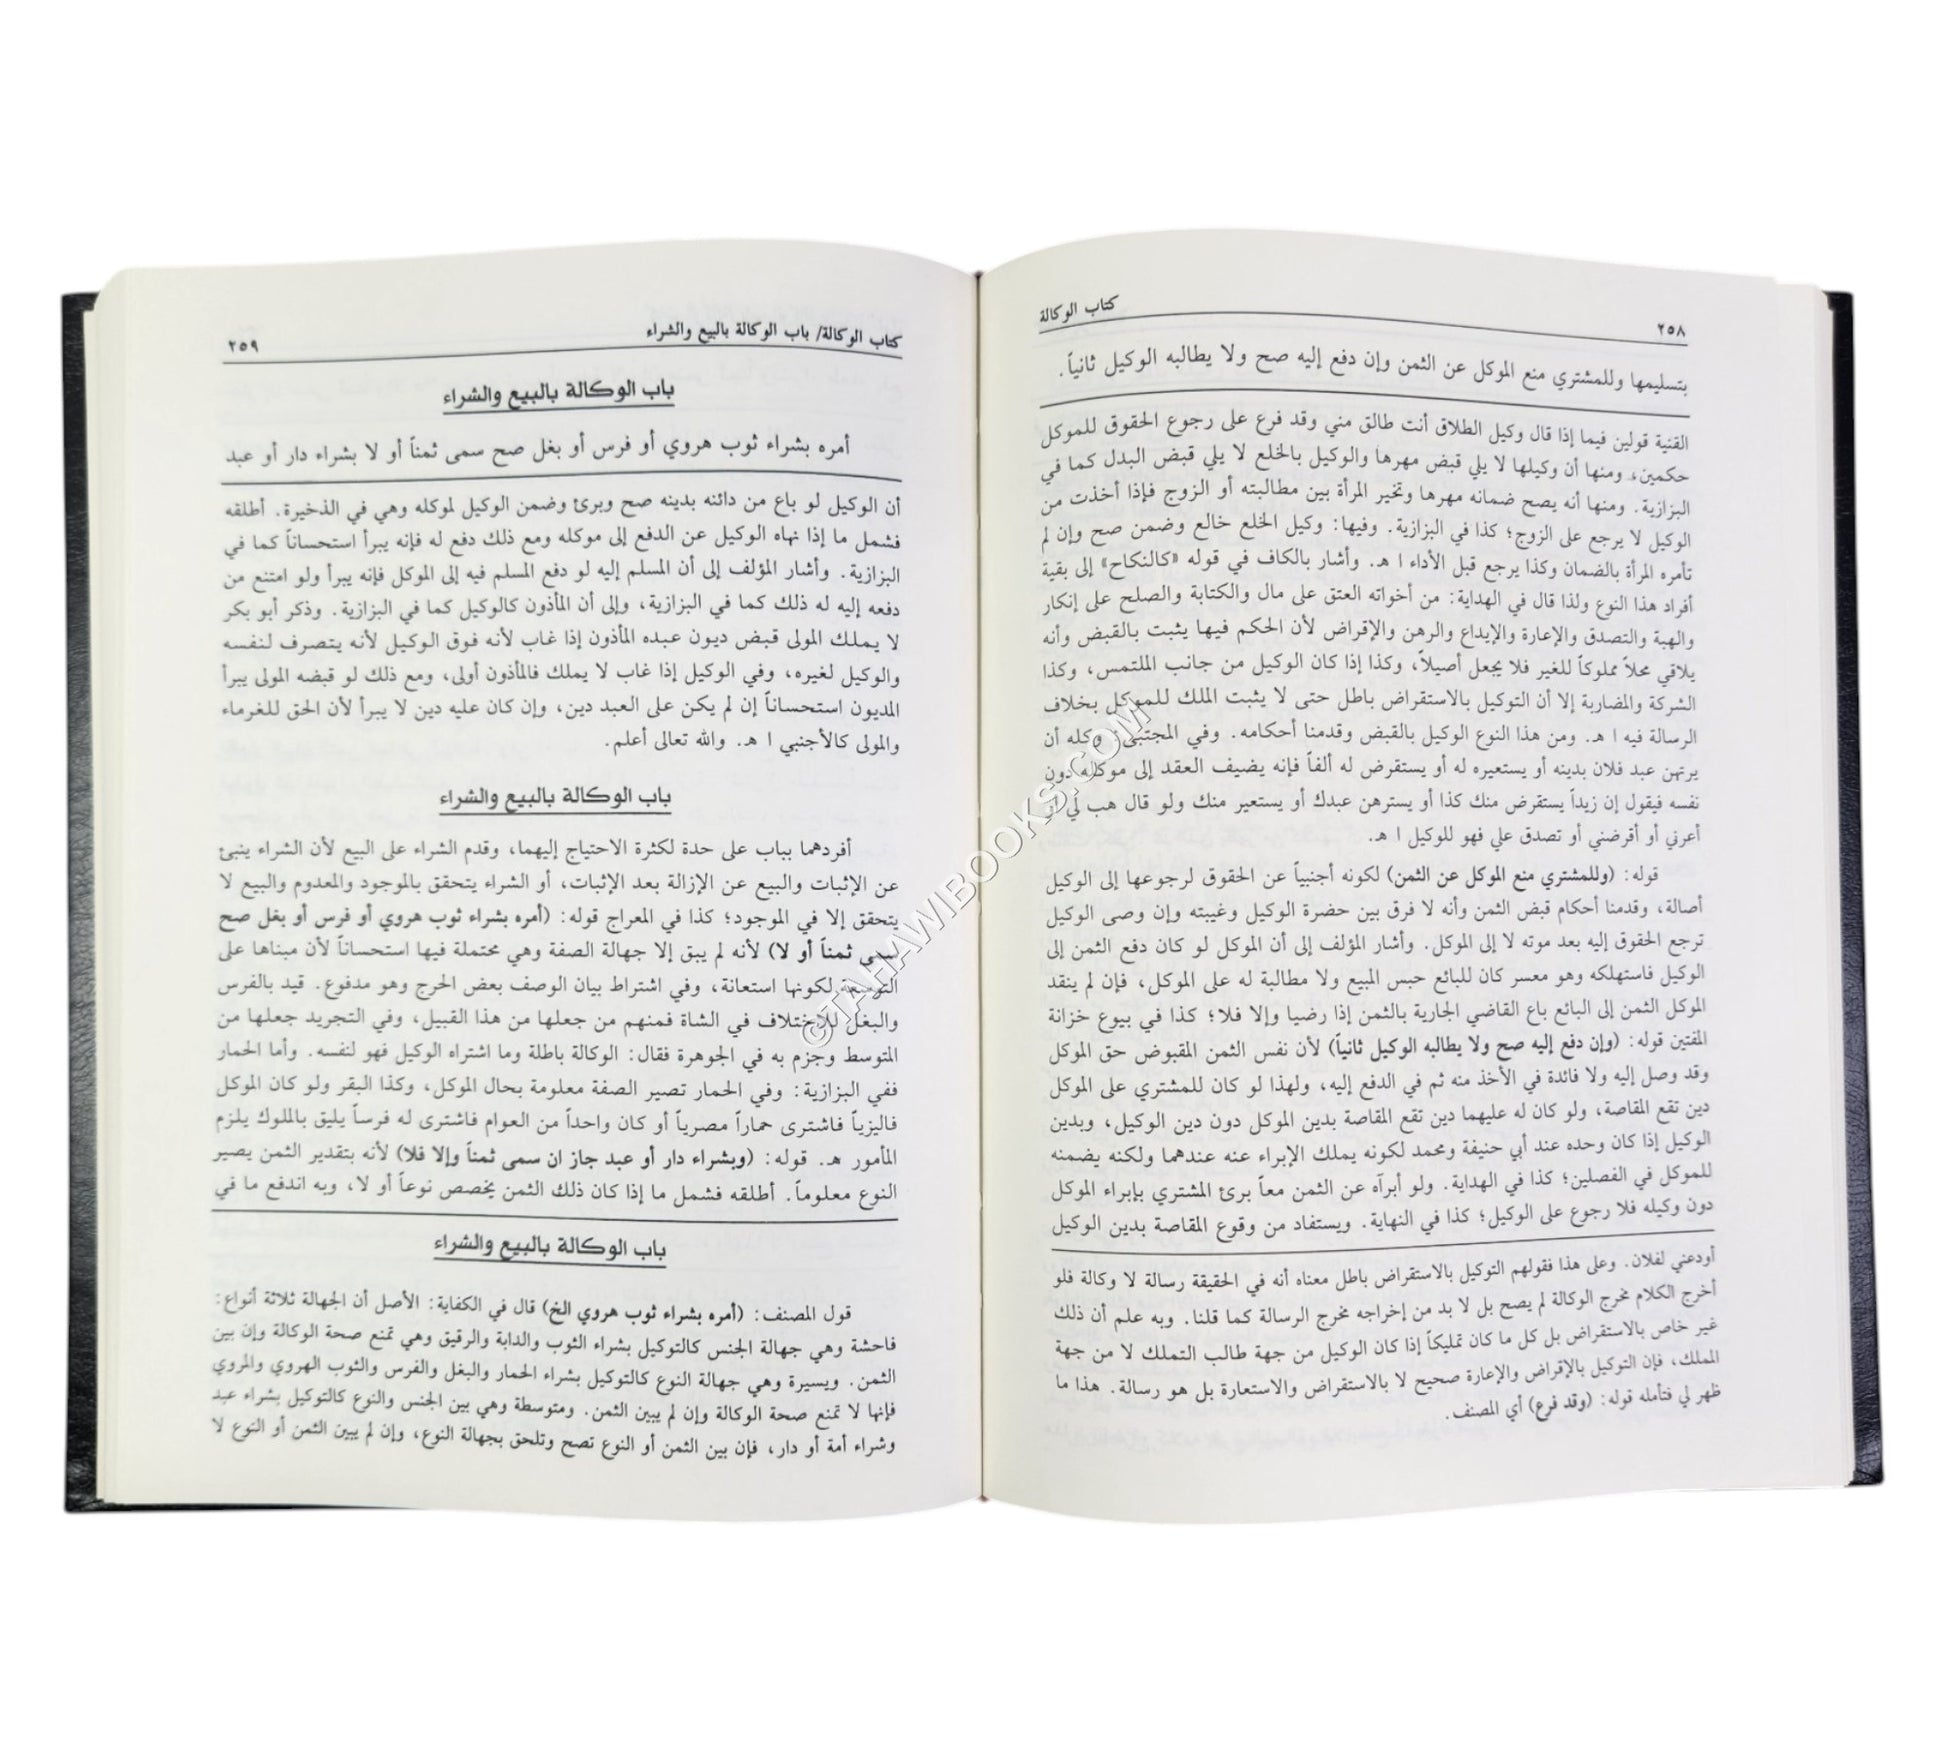 ٢٥٨
كتاب الوكالة
بتسليمها وللمشتري منع الموكل عن الثمن وإن دفع إليه صح ولا يطالبه الوكيل ثانياً.
القنية قولين فيما إذا قال وكيل الطلاق أنت طالق مني وقد فرع على رجوع الحقوق للموكل
حكمين، ومنها أن وكيلها لا يلي قبض مهرها والوكيل بالخلع لا يلي قبض البدل كما في
البزازية. ومنها أنه يصح ضمانه مهرها وتخير المرأة بين مطالبته أو الزوج فإذا أخذت من
الوكيل لا يرجع على الزوج؛ كذا في البزازية. وفيها: وكيل الخلع خالع وضمن صح وإن لم
تأمره المرأة بالضمان وكذا يرجع قبل الأداء ا هـ. وأشار بالكاف في قوله «كالنكاح» إلى بقية
أفراد هذا النوع ولذا قال في الهداية: من أخواته العتق على مال والكتابة والصلح على إنكار
والهبة والتصدق والإعارة والإيداع والرهن والإقراض لأن الحكم فيها يثبت بالقبض وأنه
يلاقي محلاً مملوكاً للغير فلا يجعل أصيلاً، وكذا إذا كان الوكيل من جانب الملتمس، وكذا
الشركة والمضاربة إلا أن التوكيل بالاستقراض باطل حتى لا يثبت الملك للموكل بخلاف
الرسالة فيه ا هـ. ومن هذا النوع الوكيل بالقبض وقدمنا أحكامه. وفي المجتبى: وكله أن
يرتهن عبد فلان بدينه أو يستعيره له أو يستقرض له ألفاً فإنه يضيف العقد إلى موكله دون
نفسه فيقول إن زيداً يستقرض منك كذا أو يسترهن عبدك أو يستعير منك ولو قال هب لي أو
أعرني أو أقرضني أو تصدق علي فهو للوكيل ا هـ.
قوله: (وللمشتري منع الموكل عن الثمن) لكونه أجنبياً عن الحقوق لرجوعها إلى الوكيل
أصالة، وقدمنا أحكام قبض الثمن وأنه لا فرق بين حضرة الوكيل وغيبته وإن وصى الوكيل
ترجع الحقوق إليه بعد موته لا إلى الموكل. وأشار المؤلف إلى أن الموكل لو كان دفع الثمن إلى
الوكيل فاستهلكه وهو معسر كان للبائع حبس المبيع ولا مطالبة له على الموكل، فإن لم ينقد
الموكل الثمن إلى البائع باع القاضي الجارية بالثمن إذا رضيا وإلا فلا؛ كذا في بيوع خزانة
المفتين قوله: (وإن دفع إليه صح ولا يطالبه الوكيل ثانياً) لأن نفس الثمن المقبوض حق الموكل
وقد وصل إليه ولا فائدة في الأخذ منه ثم في الدفع إليه، ولهذا لو كان للمشتري على الموكل
دين تقع المقاصة، ولو كان له عليهما دين تقع المقاصة بدين الموكل دون دين الوكيل، وبدين
الوكيل إذا كان وحده عند أبي حنيفة ومحمد لكونه يملك الإبراء عنه عندهما ولكنه يضمنه
للموكل في الفصلين؛ كذا في الهداية. ولو أبرآه عن الثمن معاً برئ المشتري بإبراء الموكل
دون وكيله فلا رجوع على الوكيل؛ كذا في النهاية. ويستفاد من وقوع المقاصة بدين الوكيل
أودعني لفلان. وعلى هذا فقولهم التوكيل بالاستقراض باطل معناه أنه في الحقيقة رسالة لا وكالة فلو
أخرج الكلام مخرج الوكالة لم يصح بل لا بد من إخراجه مخرج الرسالة كما قلنا. وبه علم أن ذلك
غير خاص بالاستقراض بل كل ما كان تمليكاً إذا كان الوكيل من جهة طالب التملك لا من جهة
المملك، فإن التوكيل بالإقراض والإعارة صحيح لا بالاستقراض والاستعارة بل هو رسالة. هذا ما
ظهر لي فتأمله قوله: (وقد فرع) أي المصنف.
كتاب الوكالة/ باب الوكالة بالبيع والشراء
٢٥٩
باب الوكالة بالبيع والشراء
أمره بشراء ثوب هروي أو فرس أو بغل صح سمى ثمناً أو لا بشراء دار أو عبد
أن الوكيل لو باع من دائنه بدينه صح وبرئ وضمن الوكيل لموكله وهي في الذخيرة. أطلقه
فشمل ما إذا نهاه الوكيل عن الدفع إلى موكله ومع ذلك دفع له فإنه يبرأ استحساناً كما في
البزازية. وأشار المؤلف إلى أن المسلم إليه لو دفع المسلم فيه إلى الموكل فإنه يبرأ ولو امتنع من
دفعه إليه له ذلك كما في البزازية، وإلى أن المأذون كالوكيل كما في البزازية. وذكر أبو بكر
لا يملك المولى قبض ديون عبده المأذون إذا غاب لأنه فوق الوكيل لأنه يتصرف لنفسه
والوكيل لغيره، وفي الوكيل إذا غاب لا يملك فالمأذون أولى، ومع ذلك لو قبضه المولى يبرأ
المديون استحساناً إن لم يكن على العبد دين، وإن كان عليه دين لا يبرأ لأن الحق للغرماء
والمولى كالأجنبي ا هـ. والله تعالى أعلم.
باب الوكالة بالبيع والشراء
أفردهما بباب على حدة لكثرة الاحتياج إليهما، وقدم الشراء على البيع لأن الشراء ينبئ
عن الإثبات والبيع عن الإزالة بعد الإثبات، أو الشراء يتحقق بالموجود والمعدوم والبيع لا
يتحقق إلا في الموجود؛ كذا في المعراج قوله: (أمره بشراء ثوب هروي أو فرس أو بغل صح
سمى ثمناً أو لا) لأنه لم يبق إلا جهالة الصفة وهي محتملة فيها استحساناً لأن مبناها على
التوسعة لكونها استعانة، وفي اشتراط بيان الوصف بعض الحرج وهو مدفوع. قيد بالفرس
والبغل للاختلاف في الشاة فمنهم من جعلها من هذا القبيل، وفي التجريد جعلها من
المتوسط وجزم به في الجوهرة فقال: الوكالة باطلة وما اشتراه الوكيل فهو لنفسه. وأما الحمار
ففي البزازية: وفي الحمار تصير الصفة معلومة بحال الموكل، وكذا البقر ولو كان الموكل
فاليزياً فاشترى حماراً مصرياً أو كان واحداً من العوام فاشترى له فرساً يليق بالملوك يلزم
المأمور هـ. قوله: (وبشراء دار أو عبد جاز ان سمى ثمناً وإلا فلا) لأنه بتقدير الثمن يصير
النوع معلوماً. أطلقه فشمل ما إذا كان ذلك الثمن يخصص نوعاً أو لا، وبه اندفع ما في
باب الوكالة بالبيع والشراء
قول المصنف: (أمره بشراء ثوب هروي الخ) قال في الكفاية: الأصل أن الجهالة ثلاثة أنواع:
فاحشة وهي جهالة الجنس كالتوكيل بشراء الثوب والدابة والرقيق وهي تمنع صحة الوكالة وإن بين
الثمن. ويسيرة وهي جهالة النوع كالتوكيل بشراء الحمار والبغل والفرس والثوب الهروي والمروي
فإنها لا تمنع صحة الوكالة وإن لم يبين الثمن. ومتوسطة وهي بين الجنس والنوع كالتوكيل بشراء عبد
وشراء أمة أو دار، فإن بين الثمن أو النوع تصح وتلحق بجهالة النوع، وإن لم يبين الثمن أو النوع لا
©TAHAWIBOOKS.COM